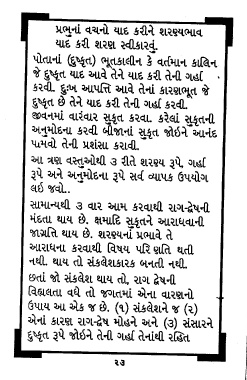 પ્રભુનાં વચનો યાદ કરીને શરણ્યભાવ
યાદ કરી શરણ સ્વીકારવું.
પોતાનાં (દુષ્કૃત) ભૂતકાલીન કે વર્તમાન કાલિન
જે દુષ્કૃત યાદ આવે તેને યાદ કરી તેની ગર્હા
કરવી. દુઃખ આપત્તિ આવે તેનાં કારણભૂત જે
દુષ્કૃત છે તેને યાદ કરી તેની ગર્હા કરવી.
જીવનમાં વારંવાર સુકૃત કરવા. કરેલાં સુકૃતની
અનુમોદના કરવી બીજાનાં સુકૃત જોઇને આનંદ
પામવો તેની પ્રશંસા કરાવી.
આ ત્રણ વસ્તુઓથી ૩ રીતે શરણ્ય રૂપે, ગર્હા
રૂપે અને અનુમોદના રૂપે સર્વ વ્યાપક ઉપયોગ
લઇ જવો..
સામાન્યથી ૩ વાર આમ કરવાથી રાગ-દ્વેષની
મંદતા થાય છે. ક્ષમાદિ સુકૃતને આરાધવાની
જાગ્રતિ થાય છે. શરણ્યનાં પ્રભાવે તે
આરાધના કરવાથી વિષય પરિણતિ થતી
નથી. થાય તો સંકલેશકારક બનતી નથી.
છતાં જો સંકલેશ થાય તો, રાગ દ્વેષની
વિહ્વલતા વધે તો જગતમાં એના વારણનો
ઉપાય આ એક જ છે. (૧) સંકલેશને જ (૨)
એનાં કારણ રાગ-દ્વેષ મોહને અને (૩) સંસારને
દુષ્કૃત રૂપે જોઇને તેની ગર્હા તેનાંથી રહિત
૨૩